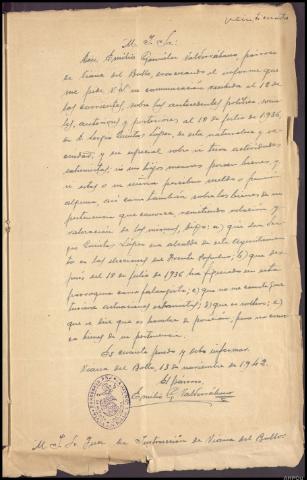 veinticuatro
M. I. Sr:
Don Emilio González Valderrábano, párroco
de Viana del Bollo, evacuando el informe que
me pide V. S. en comunicación recibida el 12 de
los corrientes, sobre los antecedentes político socia-
les, anteriores y posteriores al 18 de julio de 1936,
de D. Sergio Quintas López, de esta naturaleza y ve-
cindad, y en especial sobre si tuvo actividades
extremistas, si sus hijos menores poseen bienes, y
si estos o su viuda perciben sueldo o pensión
alguna, así como también sobre los bienes de su
pertenencia que conozca, remitiendo relación y
valoración de los mismos, digo: a) que don Ser-
gio Quintas López era alcalde de este Ayuntamien-
to en las elecciones del Frente Popular; b) que des-
pués del 18 de julio de 1936 ha figurado en esta
parroquia como falangista; c) que no me consta que
tuviera actuaciones extremistas; d) que es soltero; e)
que se dice que es hombre de posición, pero no conoz-
co bienes de su pertenencia.
Es cuanto puedo y debo informar.
Viana del Bollo, 13 de noviembre de 1942.
El párroco,
Emilio G. Valderrábano
M. I. Sr. Juez de Instrucción de Viana del Bollo.